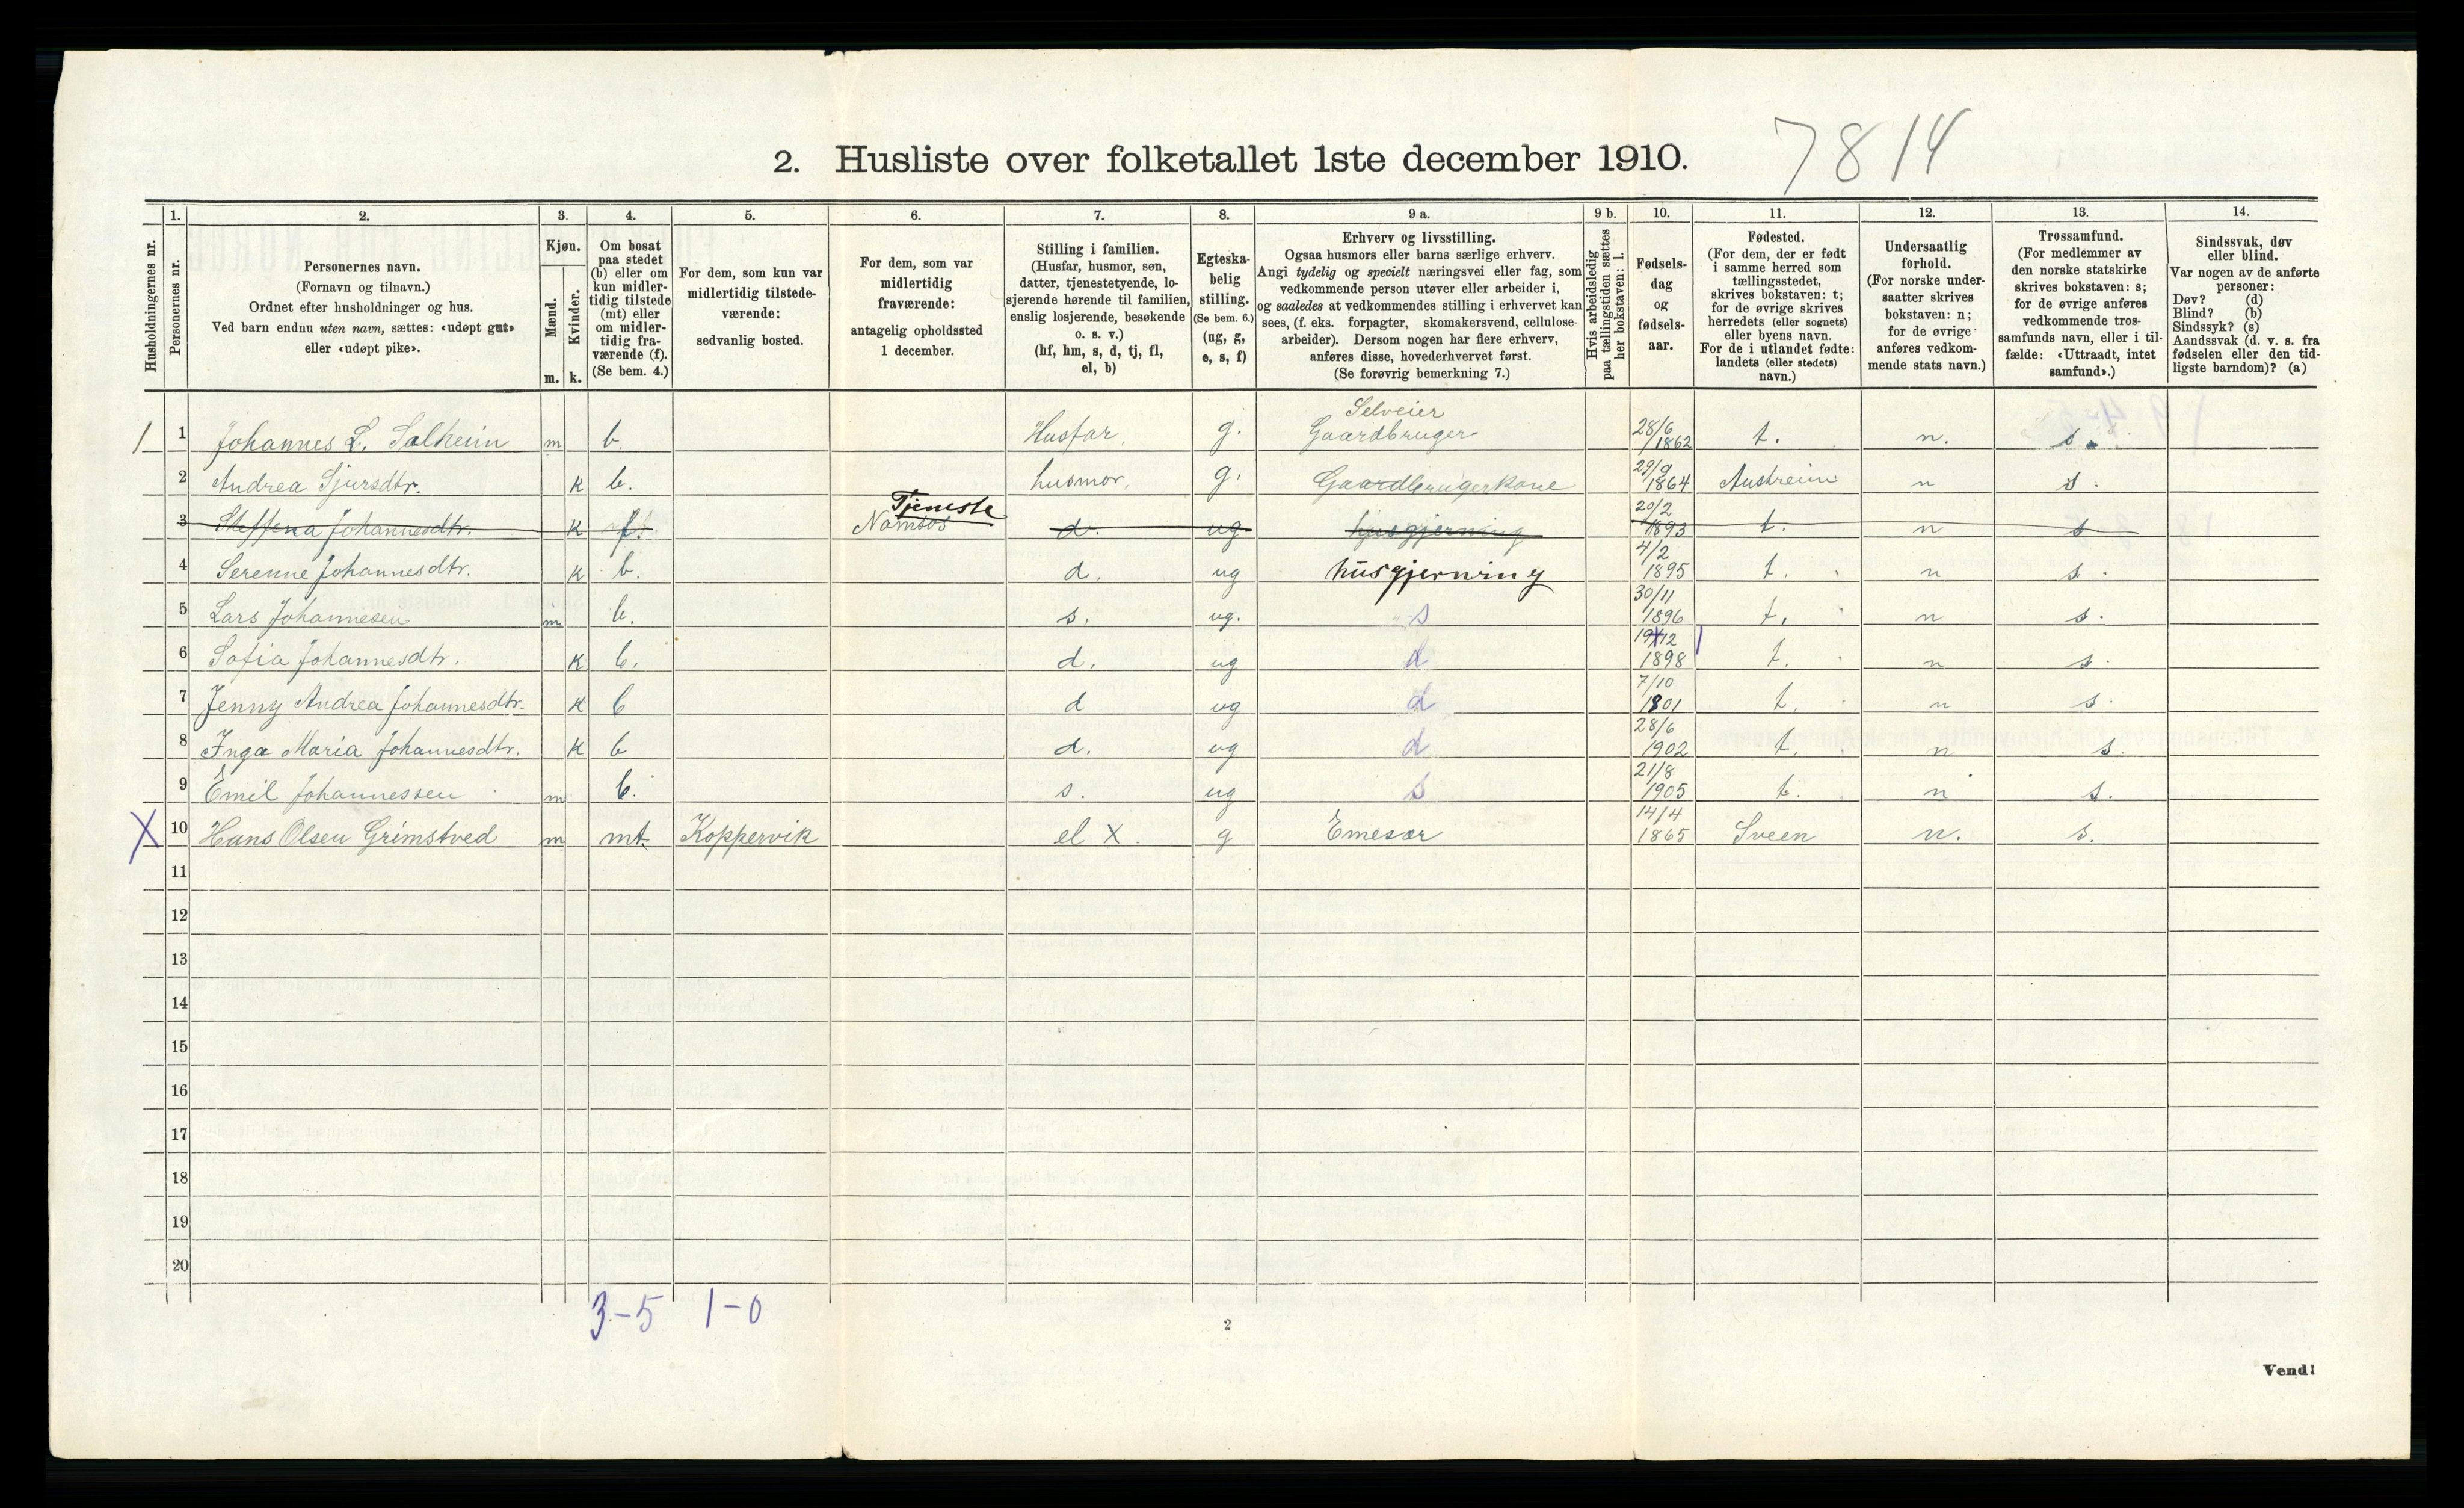 2. Husliste over folketallet 1ste december 1910.
7814
Husholdningernes nr.
1.
Personernes nr.
2.
Personernes navn.
(Fornavn og tilnavn.)
Ordnet efter husholdninger og hus.
Ved barn endnu uten navn, sættes: «udøpt gut»
eller «udøpt pike».
3.
Kjøn.
Mænd.
Kvinder.
m. k.
4.
Om bosat
paa stedet
(b) eller om
kun midler-
tidig tilstede
(mt) eller
om midler-
tidig fra-
værende (f).
(Se bem. 4.)
5.
For dem, som kun var
midlertidig tilstede-
værende:
sedvanlig bosted.
6.
For dem, som var
midlertidig
fraværende:
antagelig opholdssted
1 december.
7.
Stilling i familien.
(Husfar, husmor, søn,
datter, tjenestetyende, lo-
sjerende hørende til familien,
enslig losjerende, besøkende
o. s. v.)
(hf, hm, s, d, tj, fl,
el, b)
8.
Egteska-
belig
stilling.
(Se bem. 6.)
(ug, g,
e, s, f)
9 a.
Erhverv og livsstilling.
Ogsaa husmors eller barns særlige erhverv.
Angi tydelig og specielt næringsvei eller fag, som
vedkommende person utøver eller arbeider i,
og saaledes at vedkommendes stilling i erhvervet kan
sees, (f. eks. forpagter, skomakersvend, cellulose-
arbeider). Dersom nogen har flere erhverv,
anføres disse, hovederhvervet først.
(Se forøvrig bemerkning 7.)
9 b.
Hvis arbeidsledig
paa tællingstiden sættes
her bokstaven: l.
10.
Fødsels-
dag
og
fødsels-
aar.
11.
Fødested.
(For dem, der er født
i samme herred som
tællingsstedet,
skrives bokstaven: t;
for de øvrige skrives
herredets (eller sognets)
eller byens navn.
For de i utlandet fødte:
landets (eller stedets)
navn.)
12.
Undersaatlig
forhold.
(For norske under-
saatter skrives
bokstaven: n;
for de øvrige
anføres vedkom-
mende stats navn.)
13.
Trossamfund.
(For medlemmer av
den norske statskirke
skrives bokstaven: s;
for de øvrige anføres
vedkommende tros-
samfunds navn, eller i til-
fælde: «Uttraadt, intet
samfund».)
14.
Sindssvak, døv
eller blind.
Var nogen av de anførte
personer:
Døv? (d)
Blind? (b)
Sindssyk? (s)
Aandssvak (d. v. s. fra
fødselen eller den tid-
ligste barndom)? (a)
1 1 Johannes L. Salheim m b. Husfar. g. Selveier Gaardbruger 28/6 1862 t. n. s.
2 Andrea Sjursdtr. k b. husmor. g. Gaardbrugerkone 29/9 1864 Austreim n s.
3 Steffena Johannesdtr. k f. Tjeneste Namsos d. ug husgjerning 20/2 1893 t. n s
4 Serenne Johannesdtr. k b. d. ug husgjerning 4/2 1895 t. n s.
5 Lars Johannesen m b. s. ug. s 30/11 1896 t. n s.
6 Sofia Johannesdtr. k b. d. ug d 19/12 1898 t. n s.
7 Jenny Andrea Johannesdtr. k b d ug d 7/10 1901 t. n s.
8 Inga Maria Johannesdtr. k b d. ug d 28/6 1902 t. n s.
9 Emil Johannessen m b. s. ug s 21/8 1905 t. n s.
X 10 Hans Olsen Grimstved m mt. Koppervik el X. g Emesær 14/4 1865 Sveen n. s.
11
12
13
14
15
16
17
18
19
20
3-5 1-0
2
Vend!